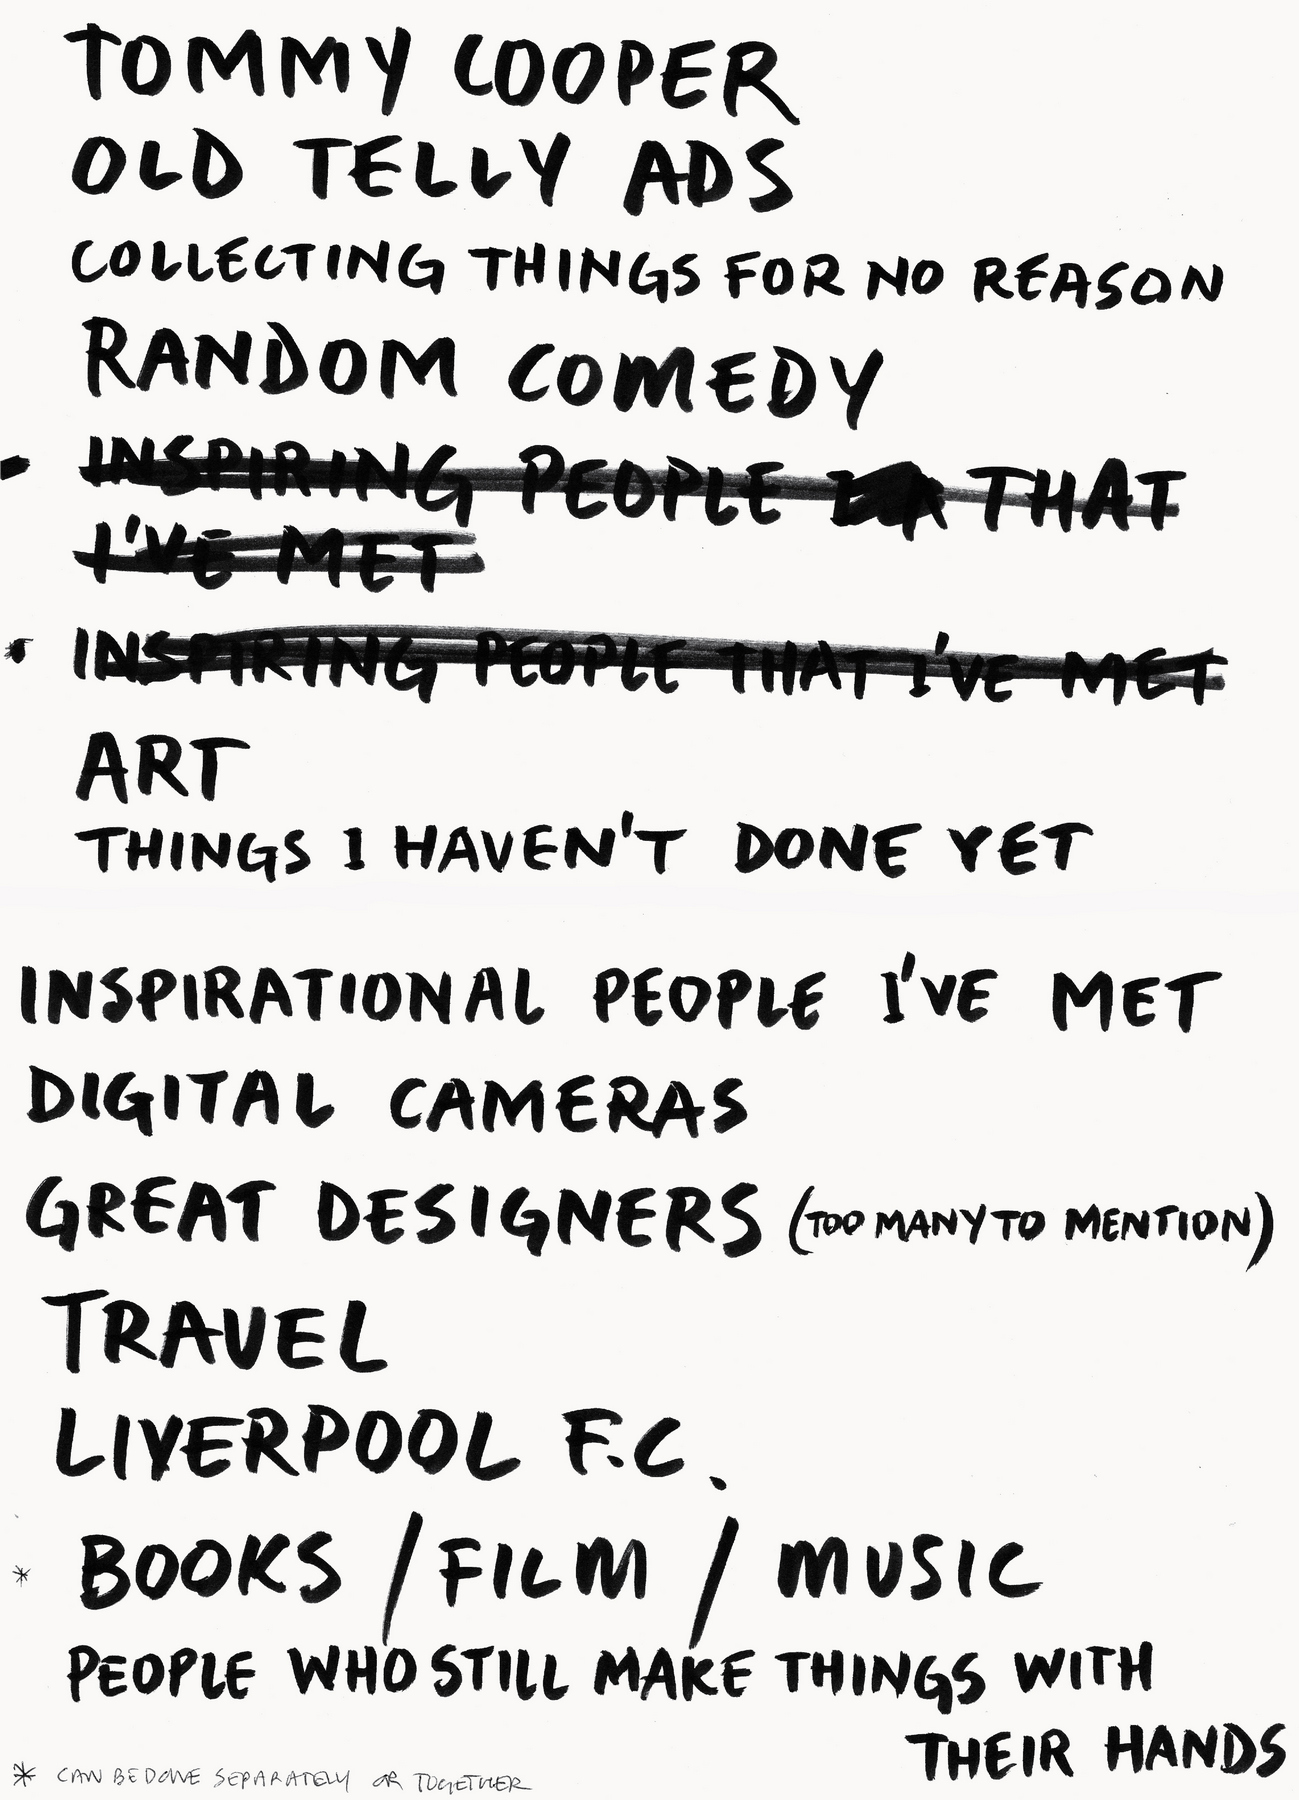 TOMMY COOPER
OLD TELLY ADS
COLLECTING THINGS FOR NO REASON
RANDOM COMEDY
INSPIRING PEOPLE THAT
I'VE MET
INSPIRING PEOPLE THAT I'VE MET
ART
THINGS I HAVEN'T DONE YET
INSPIRATIONAL PEOPLE I'VE MET
DIGITAL CAMERAS
GREAT DESIGNERS (TOO MANY TO MENTION)
TRAVEL
LIVERPOOL F.C.
* BOOKS / FILM / MUSIC
PEOPLE WHO STILL MAKE THINGS WITH
THEIR HANDS
* CAN BE DONE SEPARATELY OR TOGETHER